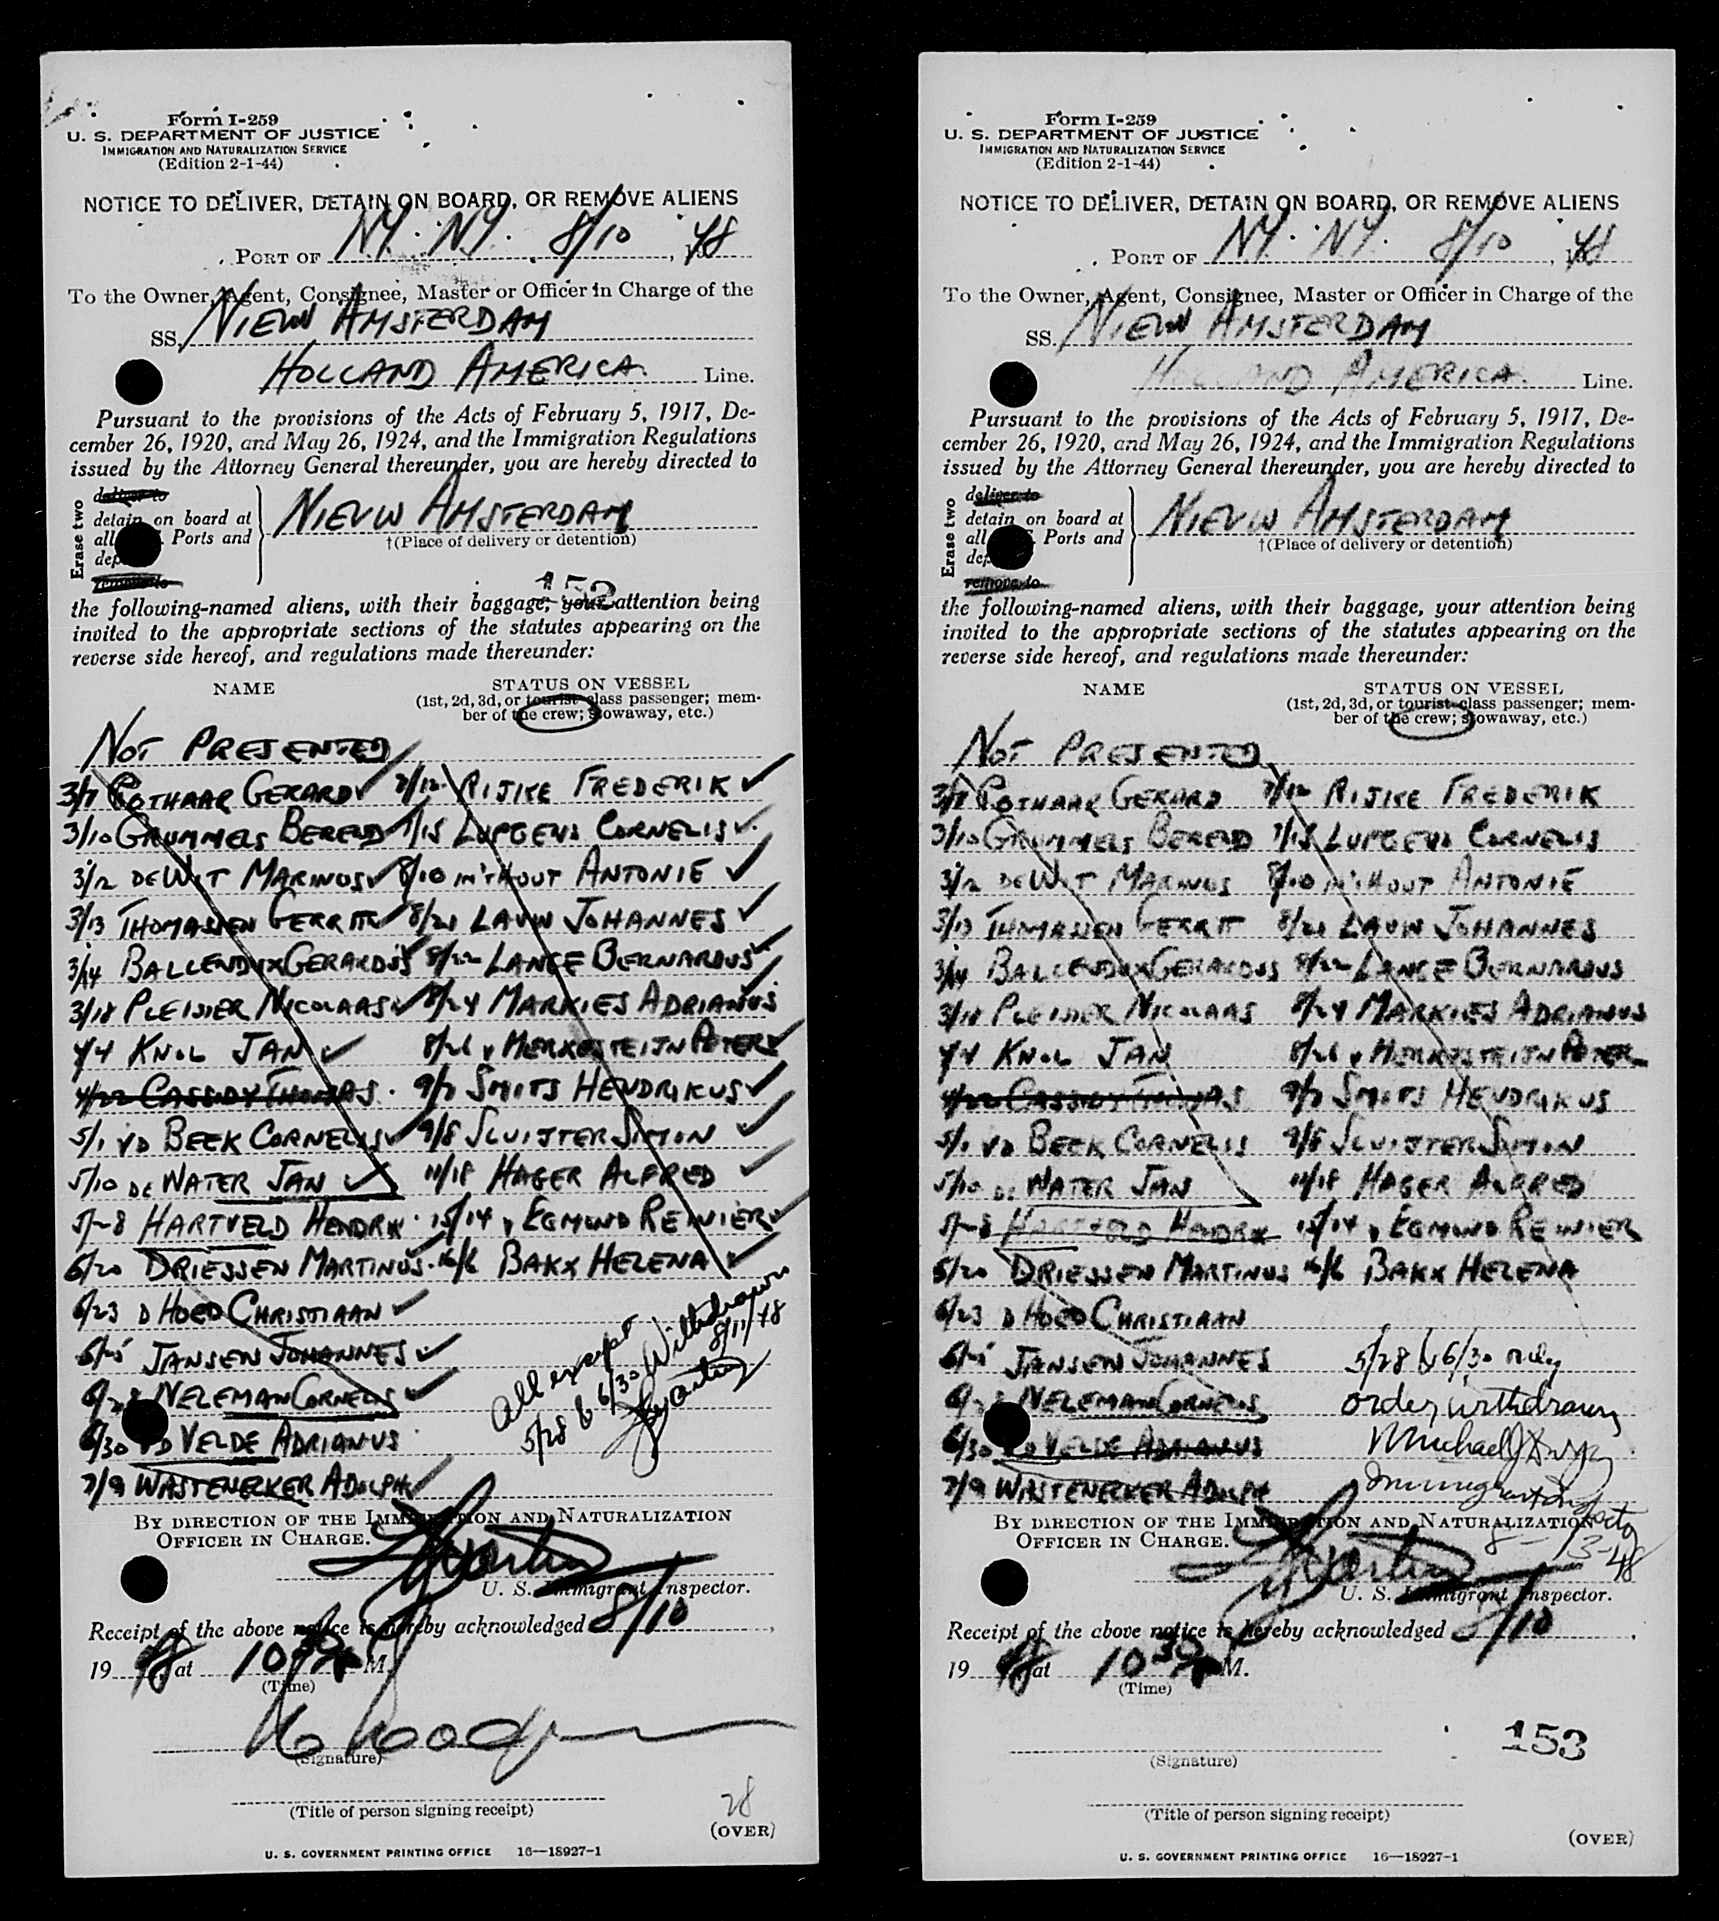 Form I-259
U. S. DEPARTMENT OF JUSTICE
IMMIGRATION AND NATURALIZATION SERVICE
(Edition 2-1-44)
NOTICE TO DELIVER, DETAIN ON BOARD, OR REMOVE ALIENS
PORT OF N.Y. N.Y. 8/10, 1948
To the Owner, Agent, Consignee, Master or Officer in Charge of the
SS. NIEUW AMSTERDAM
HOLLAND AMERICA Line.
Pursuant to the provisions of the Acts of February 5, 1917, De-
cember 26, 1920, and May 26, 1924, and the Immigration Regulations
issued by the Attorney General thereunder, you are hereby directed to
Erase two
deliver to
detain on board at
all Ports and
remove to
NIEUW AMSTERDAM
†(Place of delivery or detention)
153
the following-named aliens, with their baggage, your attention being
invited to the appropriate sections of the statutes appearing on the
reverse side hereof, and regulations made thereunder:
NAME STATUS ON VESSEL
(1st, 2d, 3d, or tourist-class passenger; mem-
ber of the crew; stowaway, etc.)
NOT PRESENTED
3/7 POTHAAR GERARD 7/12 RIJKE FREDERIK
3/10 GRUMMELS BEREND 7/15 LUPGENS CORNELIS
3/12 DE WIT MARINUS 8/10 ANTONIE
3/13 THOMASSEN GERRIT 8/21 LAUW JOHANNES
3/14 BALLENDUX GERARDUS 8/22 LANGE BERNARDUS
3/18 PLEISIER NICOLAAS 8/24 MARKIES ADRIANUS
4/4 KNOL JAN 8/26 v MERKESTEIJN PETER
4/22 CASSIDY THOMAS 9/7 SMITS HENDRIKUS
5/1 VD BEEK CORNELIS 9/8 SLUIJTER SIMON
5/10 DE WATER JAN 11/18 HAGER ALFRED
5/28 HARTVELD HENDRK 15/14 v EGMOND REINIER
6/20 DRIESSEN MARTINUS 16/6 BAKX HELENA
6/23 D HOED CHRISTIAAN
6/25 JANSEN JOHANNES
6/28 NELEMAN CORNELIS
6/30 VD VELDE ADRIANUS
7/9 WASTENECKER ADOLPH
All except
5/28 & 6/30 Withdrawn
8/11/48
BY DIRECTION OF THE IMMIGRATION AND NATURALIZATION
OFFICER IN CHARGE.
U. S. Immigrant Inspector.
Receipt of the above notice is hereby acknowledged 8/10,
1948 at 10 30 M.
(Time)
(Signature)
(Title of person signing receipt)
28
(OVER)
U. S. GOVERNMENT PRINTING OFFICE 16—18927-1
Form I-259
U. S. DEPARTMENT OF JUSTICE
IMMIGRATION AND NATURALIZATION SERVICE
(Edition 2-1-44)
NOTICE TO DELIVER, DETAIN ON BOARD, OR REMOVE ALIENS
PORT OF N.Y. N.Y. 8/10, 1948
To the Owner, Agent, Consignee, Master or Officer in Charge of the
SS. NIEUW AMSTERDAM
HOLLAND AMERICA Line.
Pursuant to the provisions of the Acts of February 5, 1917, De-
cember 26, 1920, and May 26, 1924, and the Immigration Regulations
issued by the Attorney General thereunder, you are hereby directed to
Erase two
deliver to
detain on board at
all Ports and
remove to
NIEUW AMSTERDAM
†(Place of delivery or detention)
the following-named aliens, with their baggage, your attention being
invited to the appropriate sections of the statutes appearing on the
reverse side hereof, and regulations made thereunder:
NAME STATUS ON VESSEL
(1st, 2d, 3d, or tourist-class passenger; mem-
ber of the crew; stowaway, etc.)
NOT PRESENTED
3/7 POTHAAR GERARD 7/12 RIJKE FREDERIK
3/10 GRUMMELS BEREND 7/15 LUPGENS CORNELIS
3/12 DE WIT MARINUS 8/10 ANTONIE
3/13 THOMASSEN GERRIT 8/21 LAUW JOHANNES
3/14 BALLENDUX GERARDUS 8/22 LANGE BERNARDUS
3/18 PLEISIER NICOLAAS 8/24 MARKIES ADRIANUS
4/4 KNOL JAN 8/26 v MERKESTEIJN PETER
4/22 CASSIDY THOMAS 9/7 SMITS HENDRIKUS
5/1 VD BEEK CORNELIS 9/8 SLUIJTER SIMON
5/10 DE WATER JAN 11/18 HAGER ALFRED
5/28 HARTVELD HENDRK 15/14 v EGMOND REINIER
6/20 DRIESSEN MARTINUS 16/6 BAKX HELENA
6/23 D HOED CHRISTIAAN
6/25 JANSEN JOHANNES 5/28 & 6/30 only
6/28 NELEMAN CORNELIS order withdrawn
6/30 VD VELDE ADRIANUS Michael J
7/9 WASTENECKER ADOLPH
8-13-48
BY DIRECTION OF THE IMMIGRATION AND NATURALIZATION
OFFICER IN CHARGE.
U. S. Immigrant Inspector.
Receipt of the above notice is hereby acknowledged 8/10,
1948 at 10 30 M.
(Time)
153
(Signature)
(Title of person signing receipt)
(OVER)
U. S. GOVERNMENT PRINTING OFFICE 16—18927-1